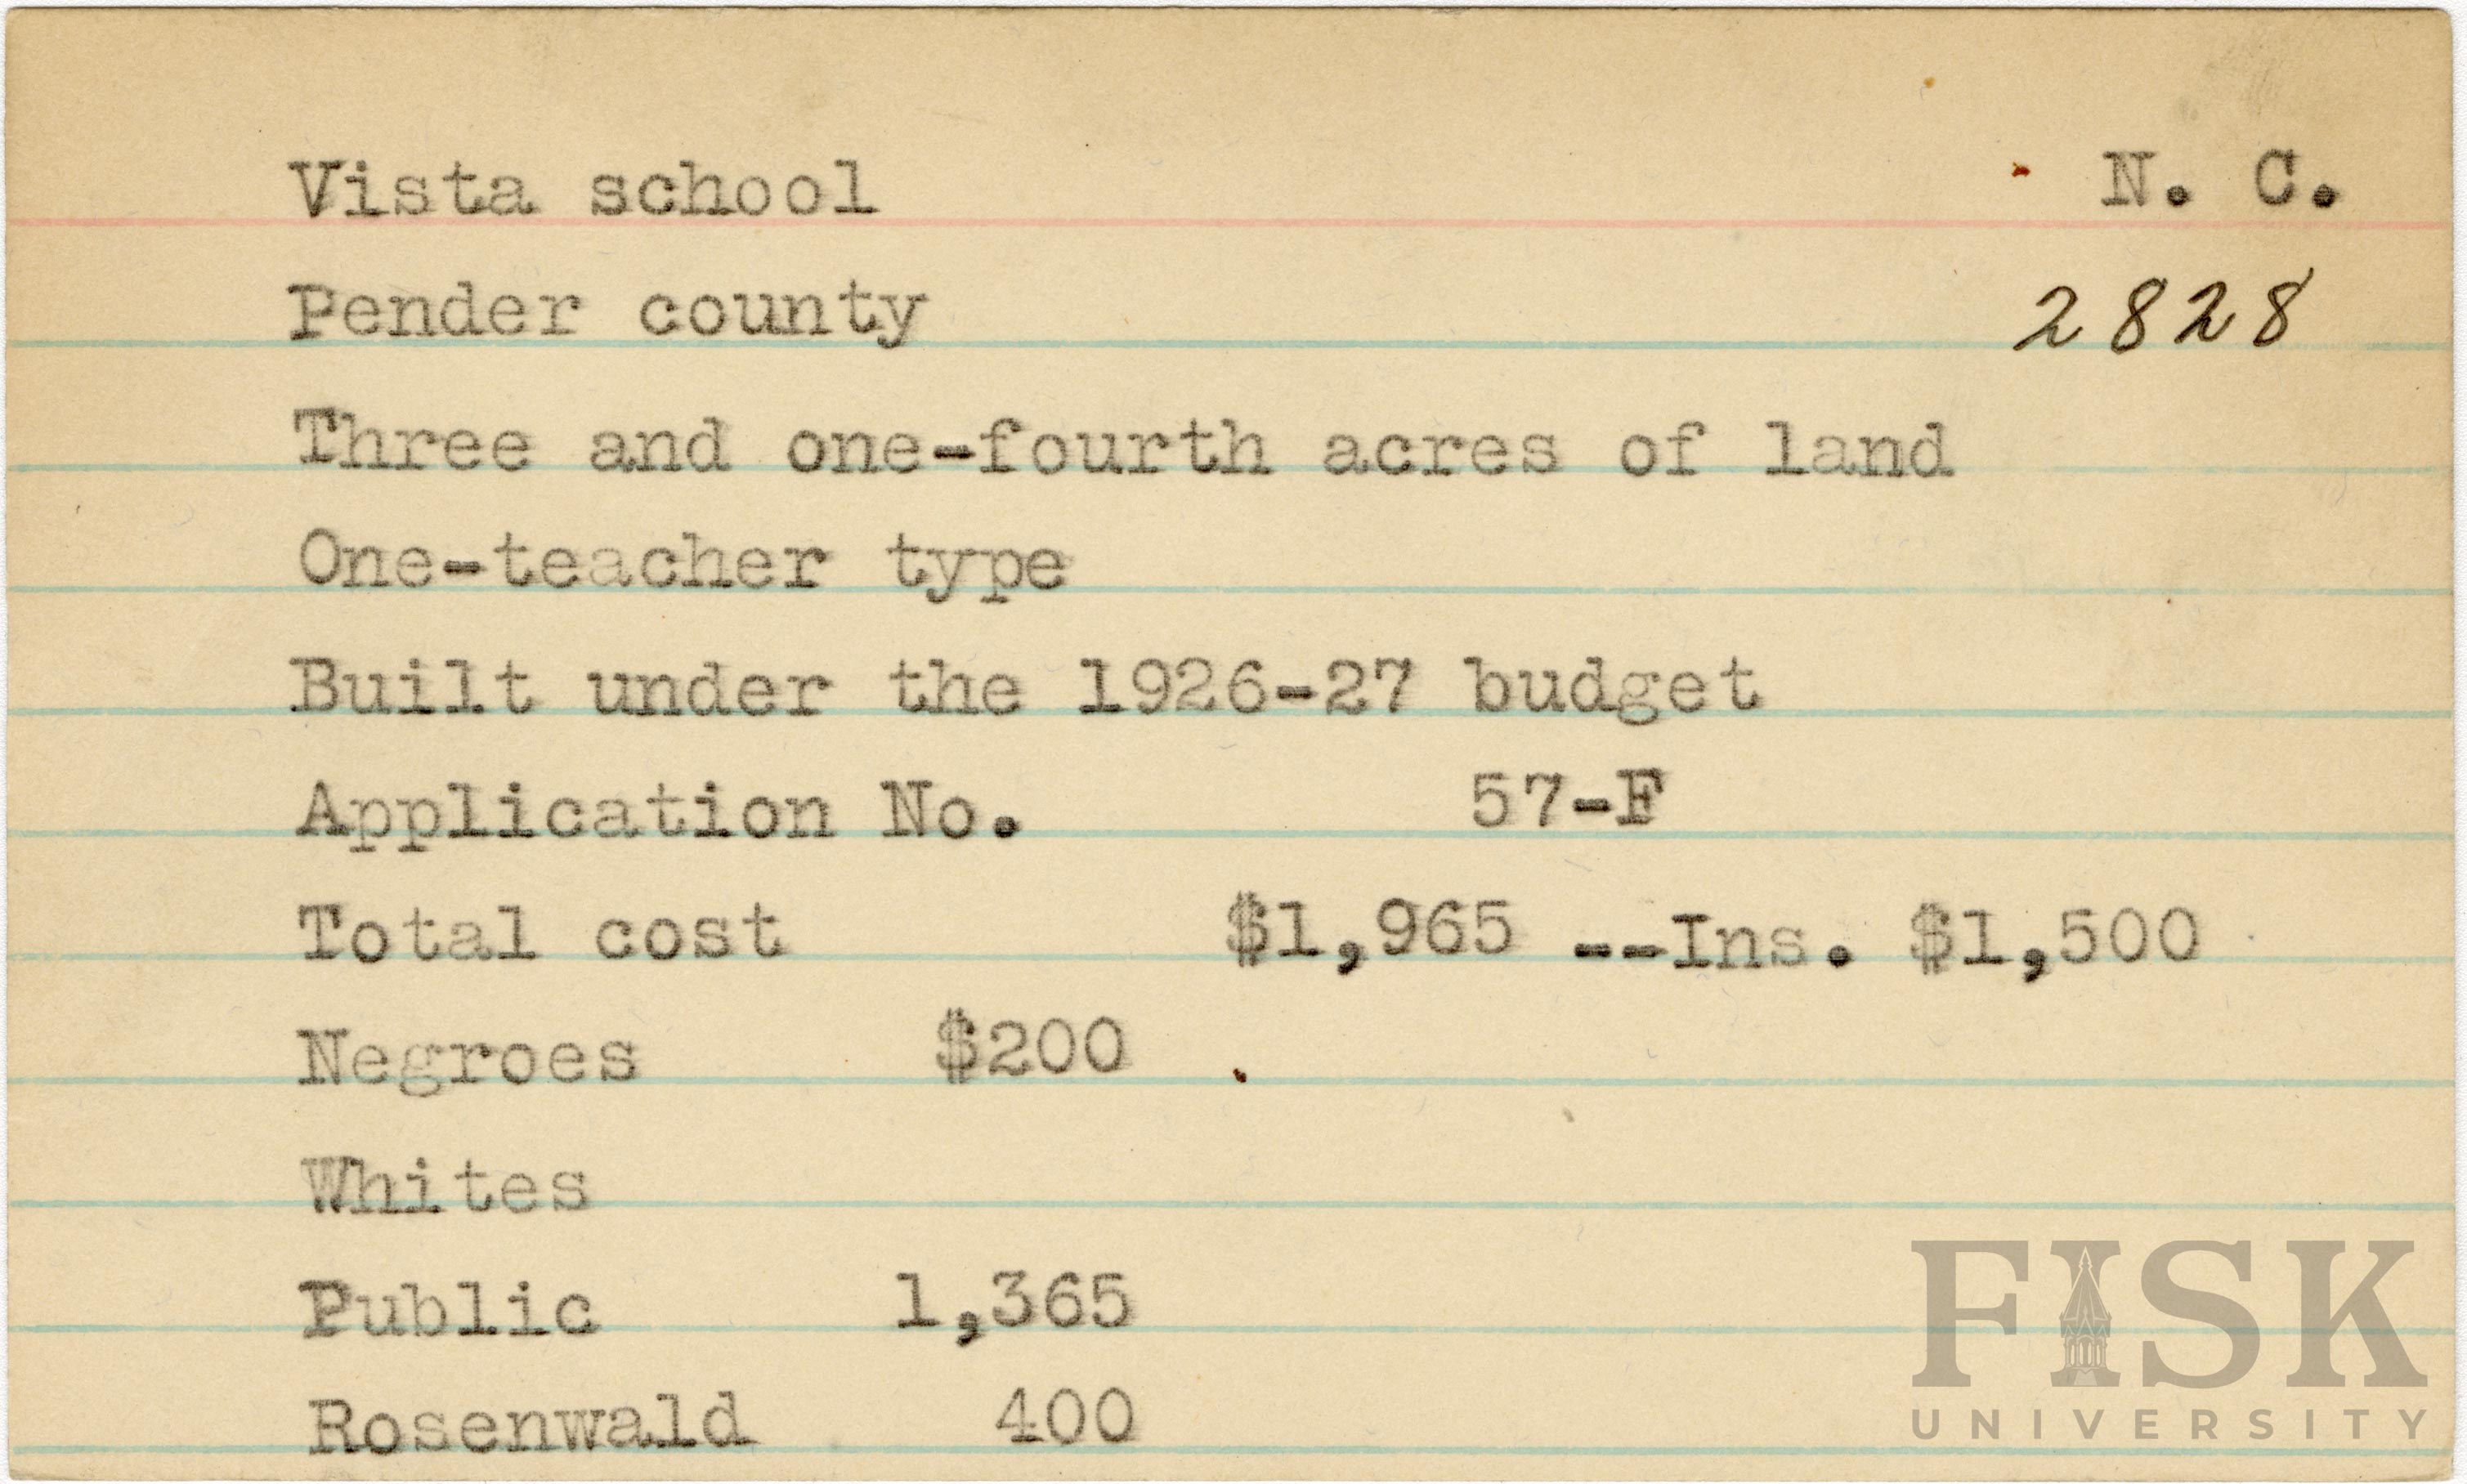 Vista school N. C.
Pender county 2828
Three and one-fourth acres of land
One-teacher type
Built under the 1926-27 budget
Application No. 57-F
Total cost $1,965 --Ins. $1,500
Negroes $200
Whites
Public 1,365
Rosenwald 400
FISK
UNIVERSITY